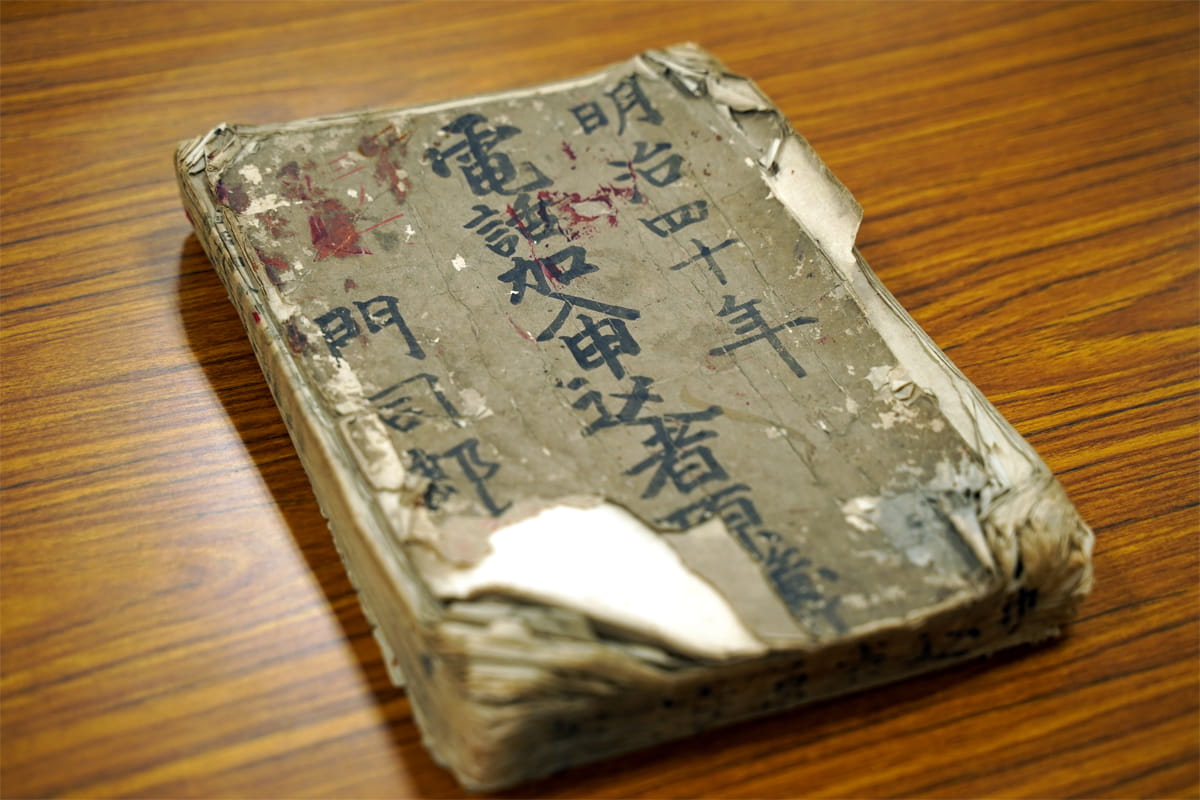 明治四十年
電話加入申込者原簿
門司郵